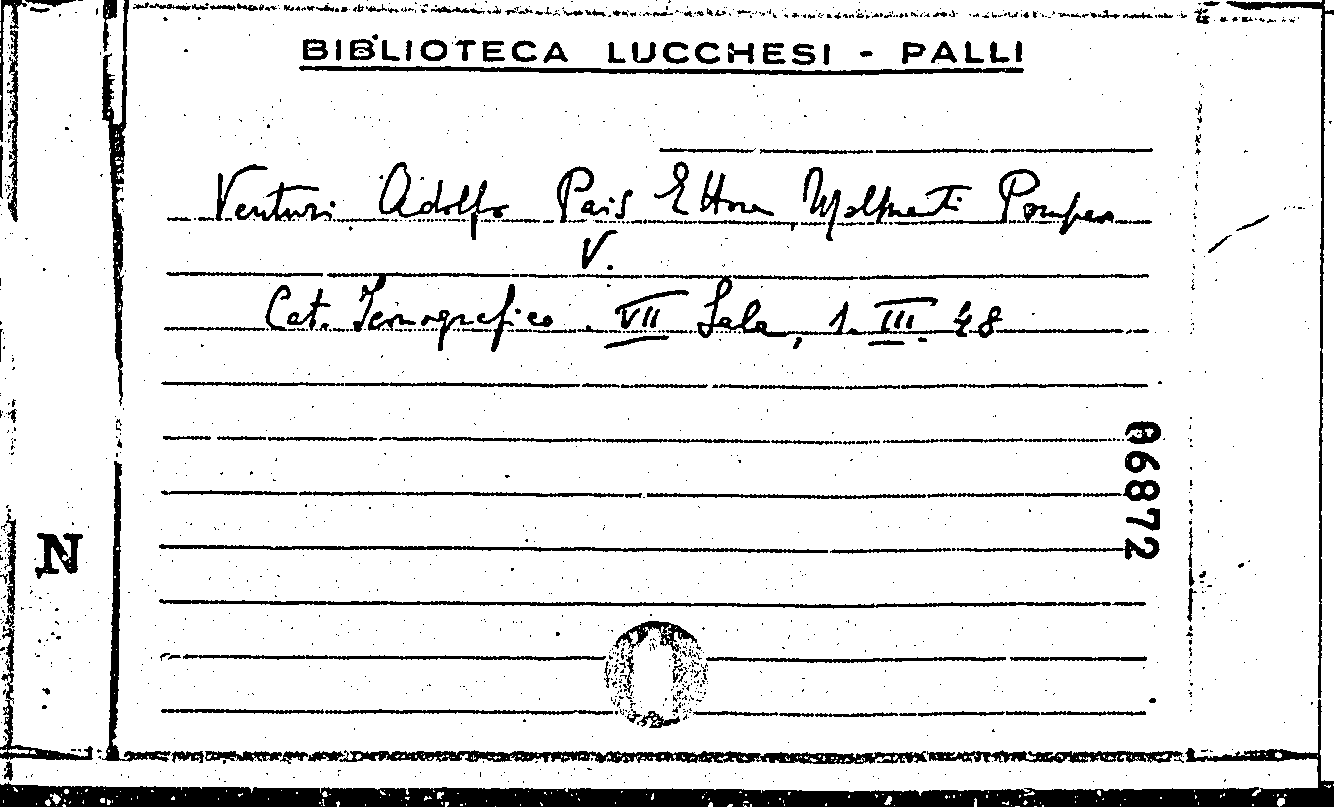 BIBLIOTECA LUCCHESI - PALLI
Venturi Adolfo Pais Ettore Molmenti Pompeo
V.
Cat. Iconografico. VII Sala, 1. III. 48
06872
N